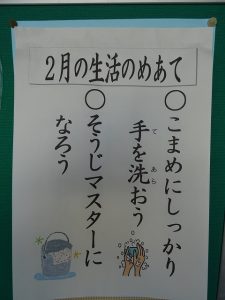 ２月の生活のめあて
○こまめにしっかり
手を洗おう
○そうじマスターに
なろう